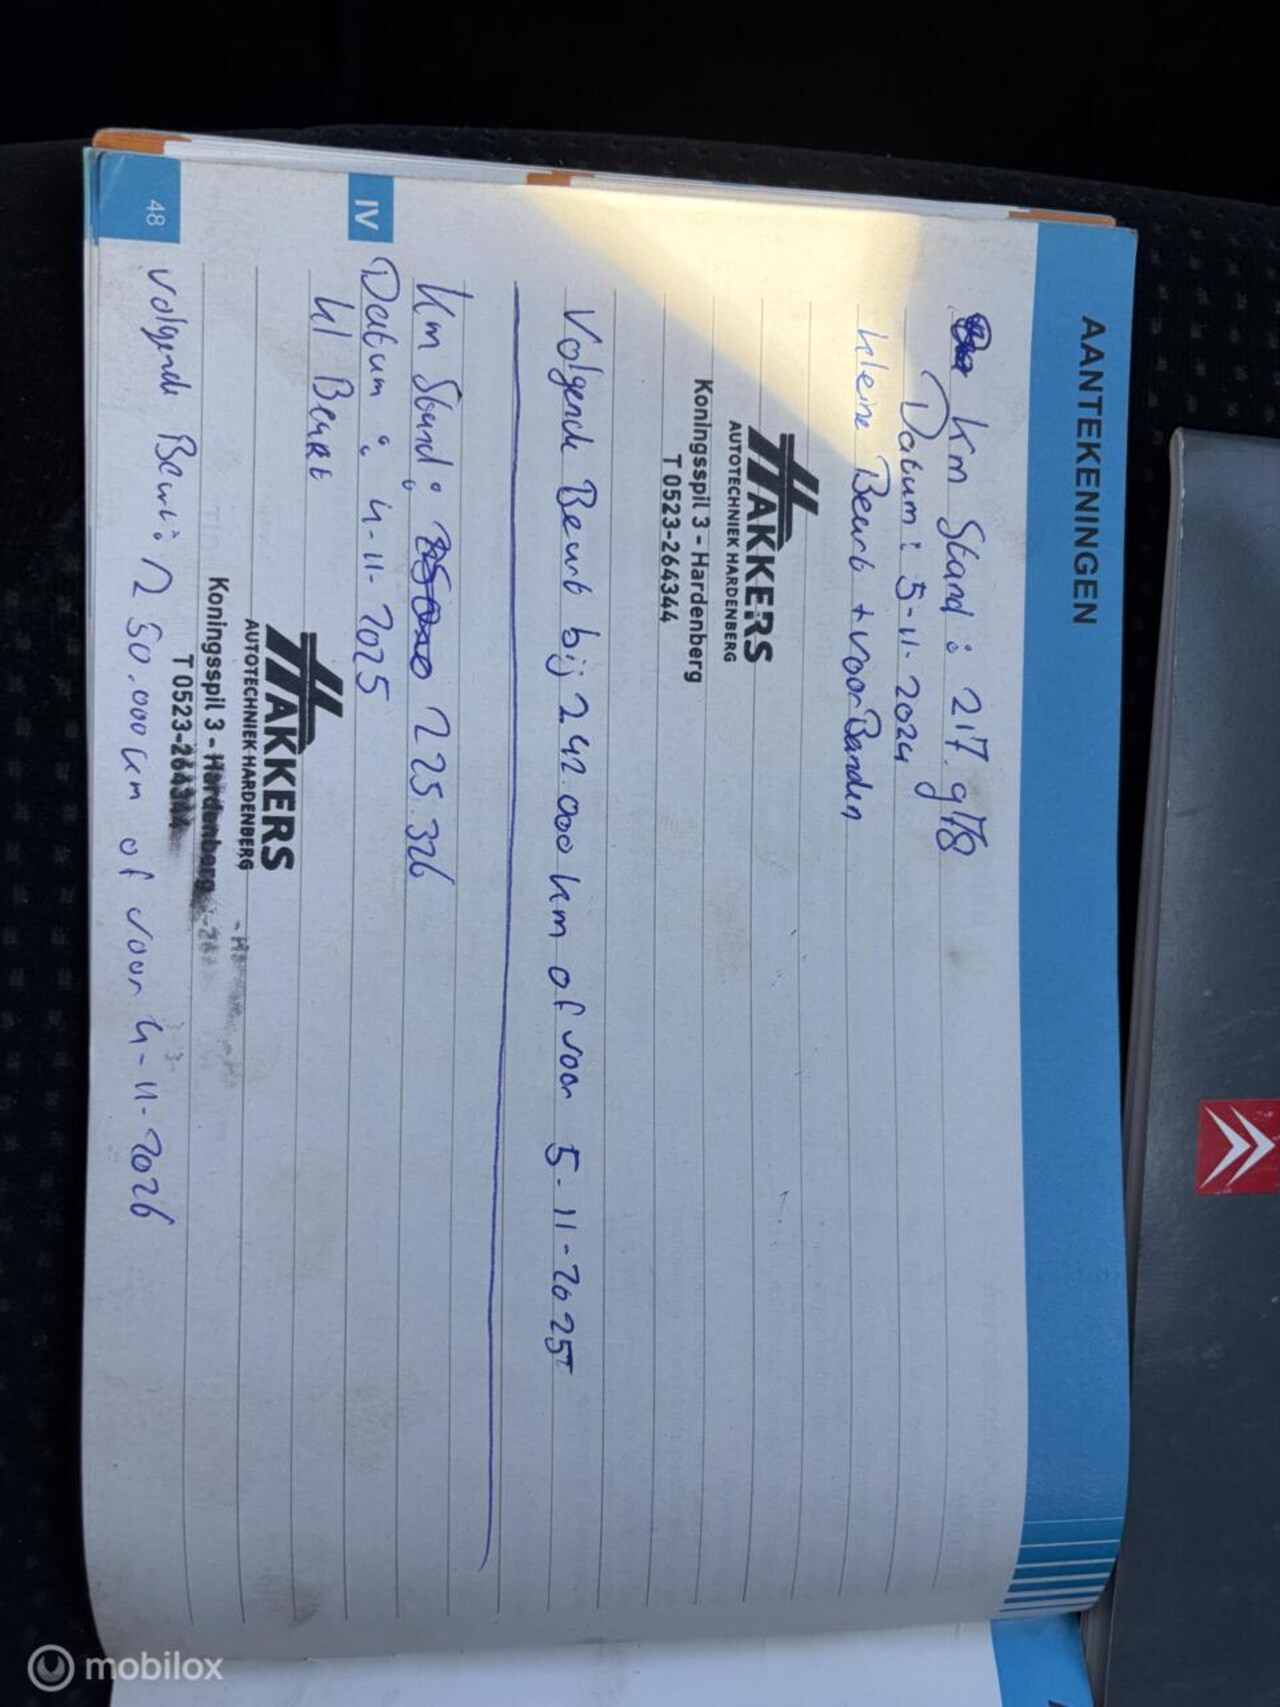 AANTEKENINGEN
Km Stand : 217.978
Datum : 5-11-2024
Kleine Beurt + voor Banden
HAKKERS
AUTOTECHNIEK HARDENBERG
Koningsspil 3 - Hardenberg
T 0523-264344
Volgende Beurt bij 242.000 km of voor 5-11-2025
Km Stand : 225.326
Datum : 4-11-2025
Kl Beurt
HAKKERS
AUTOTECHNIEK HARDENBERG
Koningsspil 3 - Hardenberg
T 0523-264344
Volgende Beurt : 250.000 km of voor 4-11-2026
IV
48
mobilox